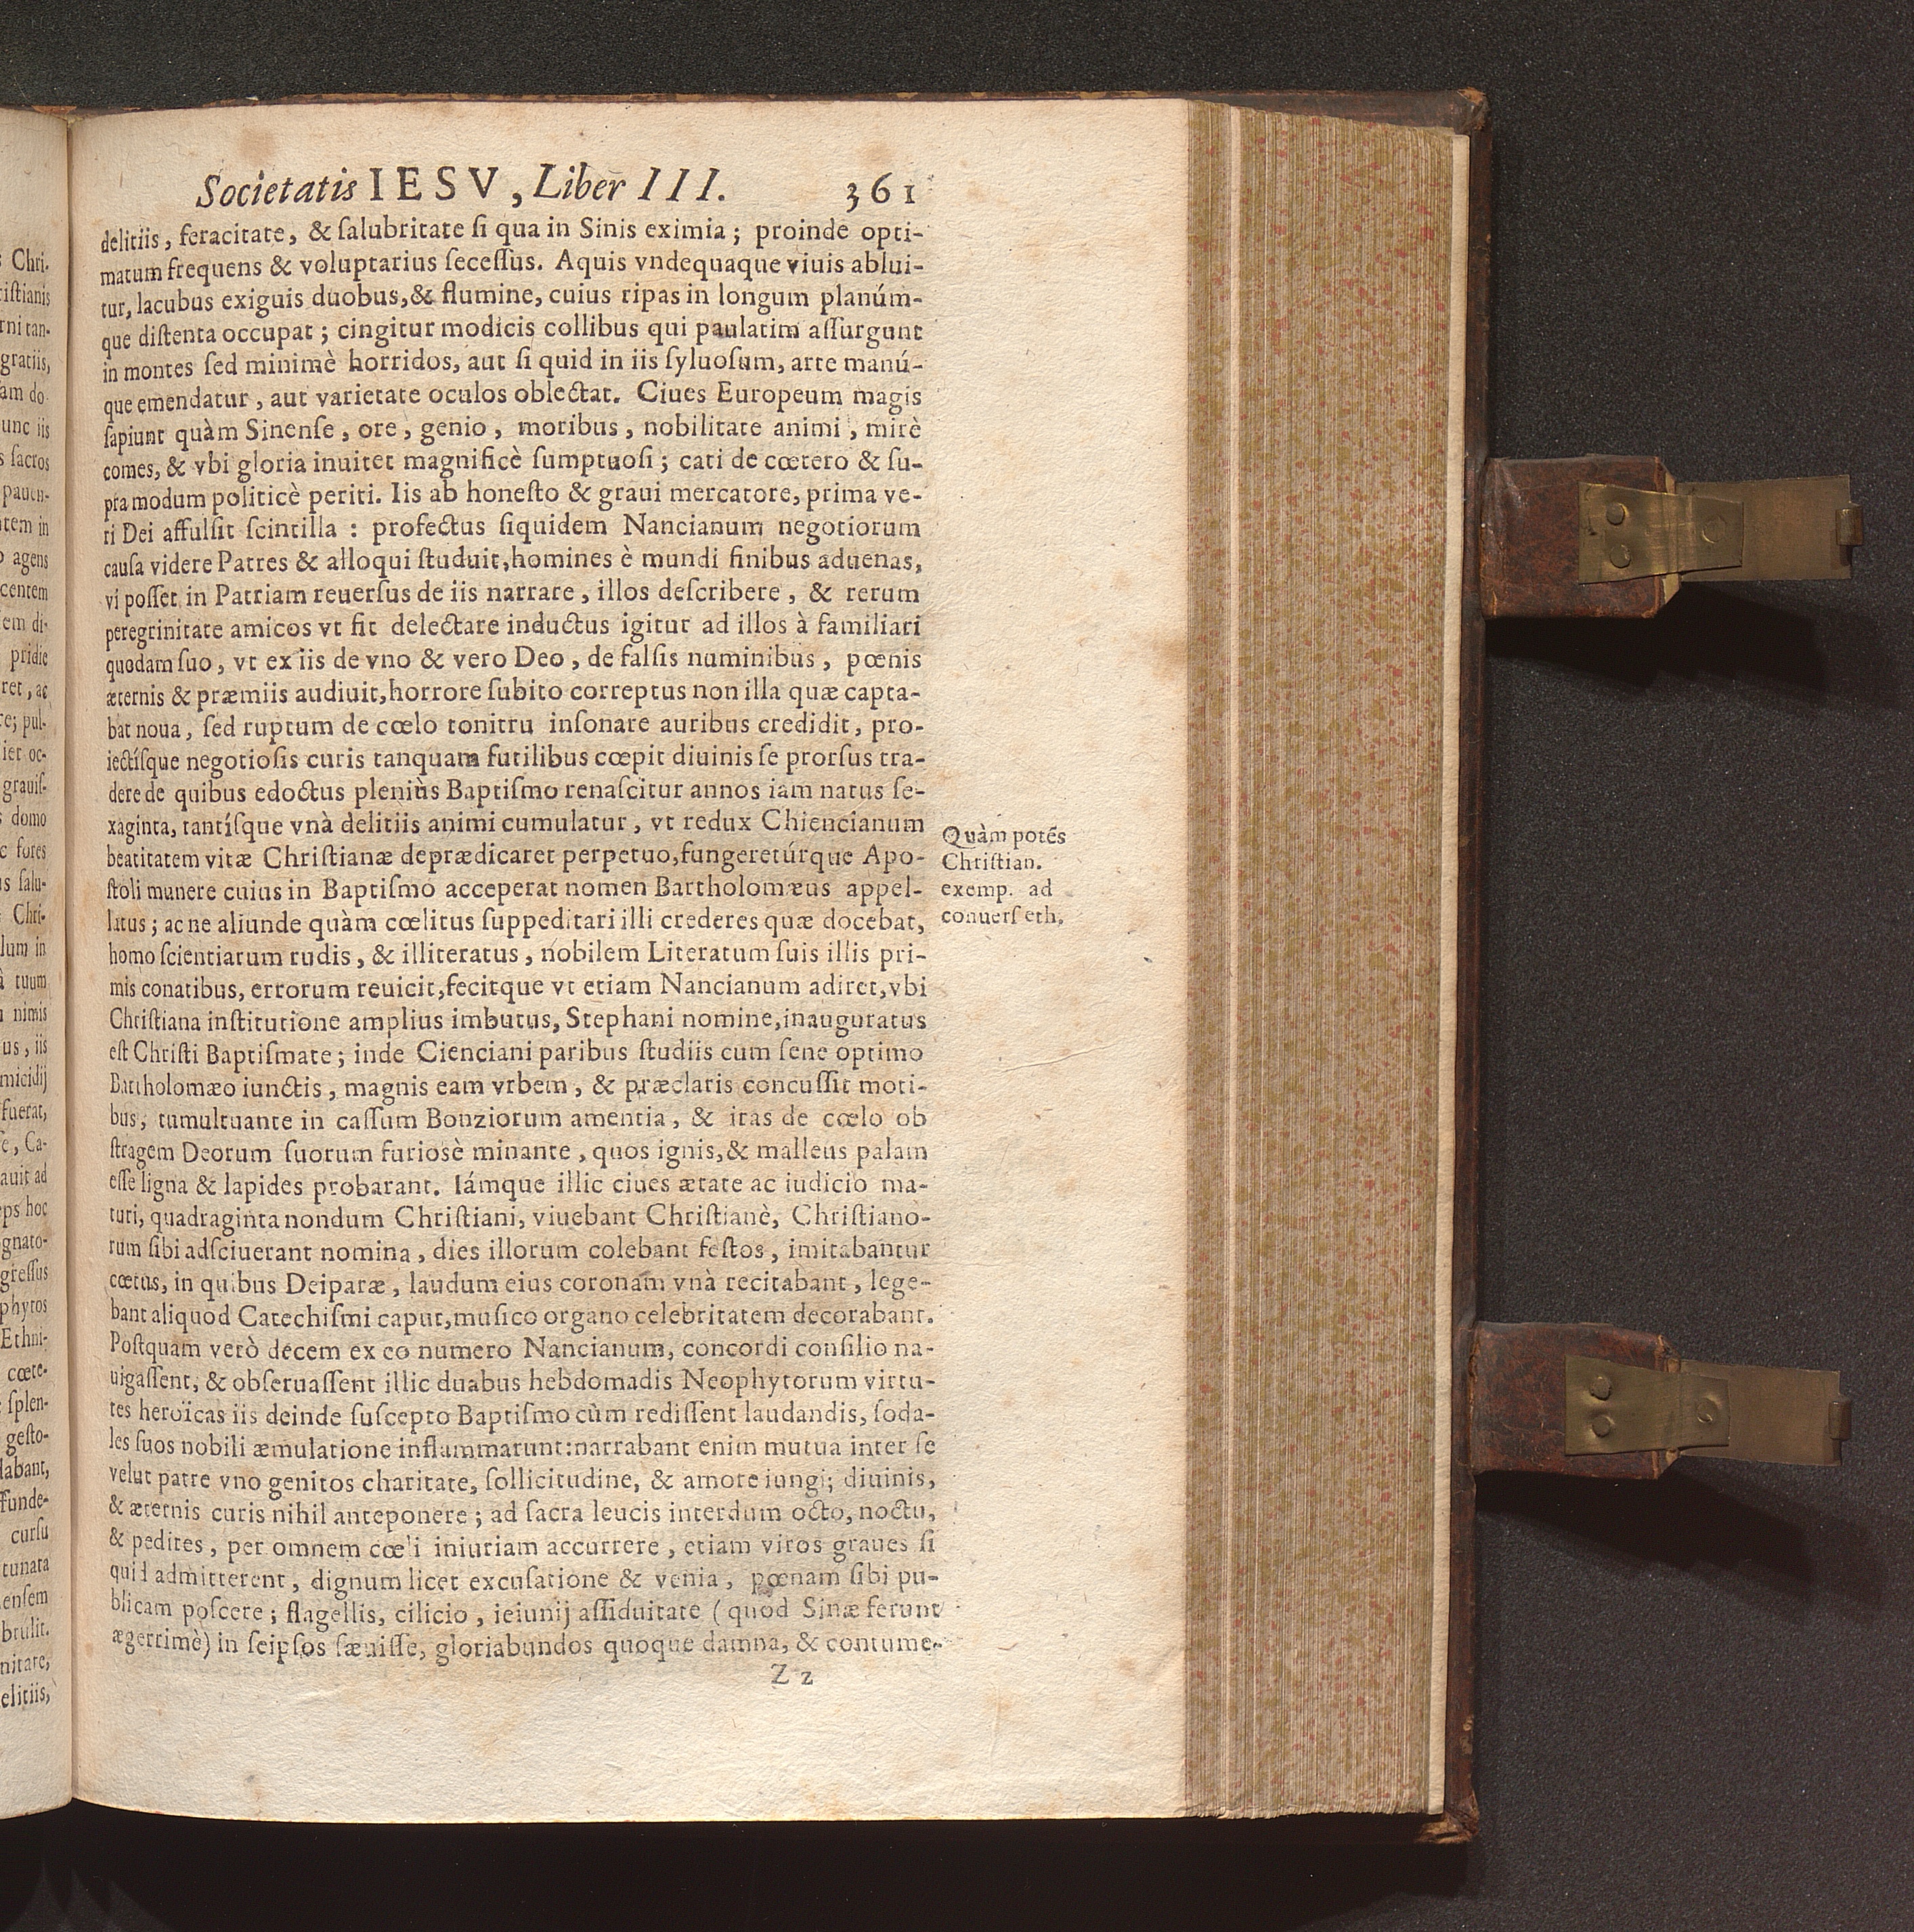 Societatis IESV, Liber III. 361
delitiis, feracitate, & ſalubritate ſi qua in Sinis eximia; proinde opti-
matum frequens & voluptarius ſeceſſus. Aquis vndequaque viuis ablui-
tur, lacubus exiguis duobus, & flumine, cuius ripas in longum planúm-
que diſtenta occupat; cingitur modicis collibus qui paulatim aſſurgunt
in montes ſed minimè horridos, aut ſi quid in iis ſyluoſum, arte manú-
que emendatur, aut varietate oculos oblectat. Ciues Europeum magis
ſapiunt quàm Sinenſe, ore, genio, moribus, nobilitate animi, mirè
comes, & vbi gloria inuitet magnificè ſumptuoſi; cati de cœtero & ſu-
pra modum politicè periti. Iis ab honeſto & graui mercatore, prima ve-
ri Dei affulſit ſcintilla: profectus ſiquidem Nancianum negotiorum
cauſa videre Patres & alloqui ſtuduit, homines è mundi finibus aduenas,
vi poſſet in Patriam reuerſus de iis narrare, illos deſcribere, & rerum
peregrinitate amicos vt fit delectare inductus igitur ad illos à familiari
quodam ſuo, vt ex iis de vno & vero Deo, de falſis numinibus, pœnis
æternis & præmiis audiuit, horrore ſubito correptus non illa quæ capta-
bat noua, ſed ruptum de cœlo tonitru inſonare auribus credidit, pro-
iectíſque negotioſis curis tanquam futilibus cœpit diuinis ſe prorſus tra-
dere de quibus edoctus pleniùs Baptiſmo renaſcitur annos iam natus ſe-
xaginta, tantíſque vnà delitiis animi cumulatur, vt redux Chiencianum
beatitatem vitæ Chriſtianæ deprædicaret perpetuo, fungeretúrque Apo-
ſtoli munere cuius in Baptiſmo acceperat nomen Bartholomæus appel-
latus; ac ne aliunde quàm cœlitus ſuppeditari illi crederes quæ docebat,
homo ſcientiarum rudis, & illiteratus, nobilem Literatum ſuis illis pri-
mis conatibus, errorum reuicit, fecitque vt etiam Nancianum adiret, vbi
Chriſtiana inſtitutione amplius imbutus, Stephani nomine, inauguratus
eſt Chriſti Baptiſmate; inde Cienciani paribus ſtudiis cum ſene optimo
Bartholomæo iunctis, magnis eam vrbem, & præclaris concuſſit moti-
bus, tumultuante in caſſum Bonziorum amentia, & iras de cœlo ob
ſtragem Deorum ſuorum furiosè minante, quos ignis, & malleus palam
eſſe ligna & lapides probarant. Iámque illic ciues ætate ac iudicio ma-
turi, quadraginta nondum Chriſtiani, viuebant Chriſtianè, Chriſtiano-
rum ſibi adſciuerant nomina, dies illorum colebant feſtos, imitabantur
cœtus, in quibus Deiparæ, laudum eius coronam vnà recitabant, lege-
bant aliquod Catechiſmi caput, muſico organo celebritatem decorabant.
Poſtquam verò decem ex eo numero Nancianum, concordi conſilio na-
uigaſſent, & obſeruaſſent illic duabus hebdomadis Neophytorum virtu-
tes heroïcas iis deinde ſuſcepto Baptiſmo cùm rediſſent laudandis, ſoda-
les ſuos nobili æmulatione inflammarunt: narrabant enim mutua inter ſe
velut patre vno genitos charitate, ſollicitudine, & amore iungi; diuinis,
& æternis curis nihil anteponere; ad ſacra leucis interdum octo, noctu,
& pedites, per omnem cœli iniuriam accurrere, etiam viros graues ſi
quid admitterent, dignum licet excuſatione & venia, pœnam ſibi pu-
blicam poſcere; flagellis, cilicio, ieiunij aſſiduitate (quod Sinæ ferunt
ægerrimè) in ſeipſos ſæuiſſe, gloriabundos quoque damna, & contume-
Zz
Quàm potēs
Chriſtian.
exemp. ad
conuerſ eth.